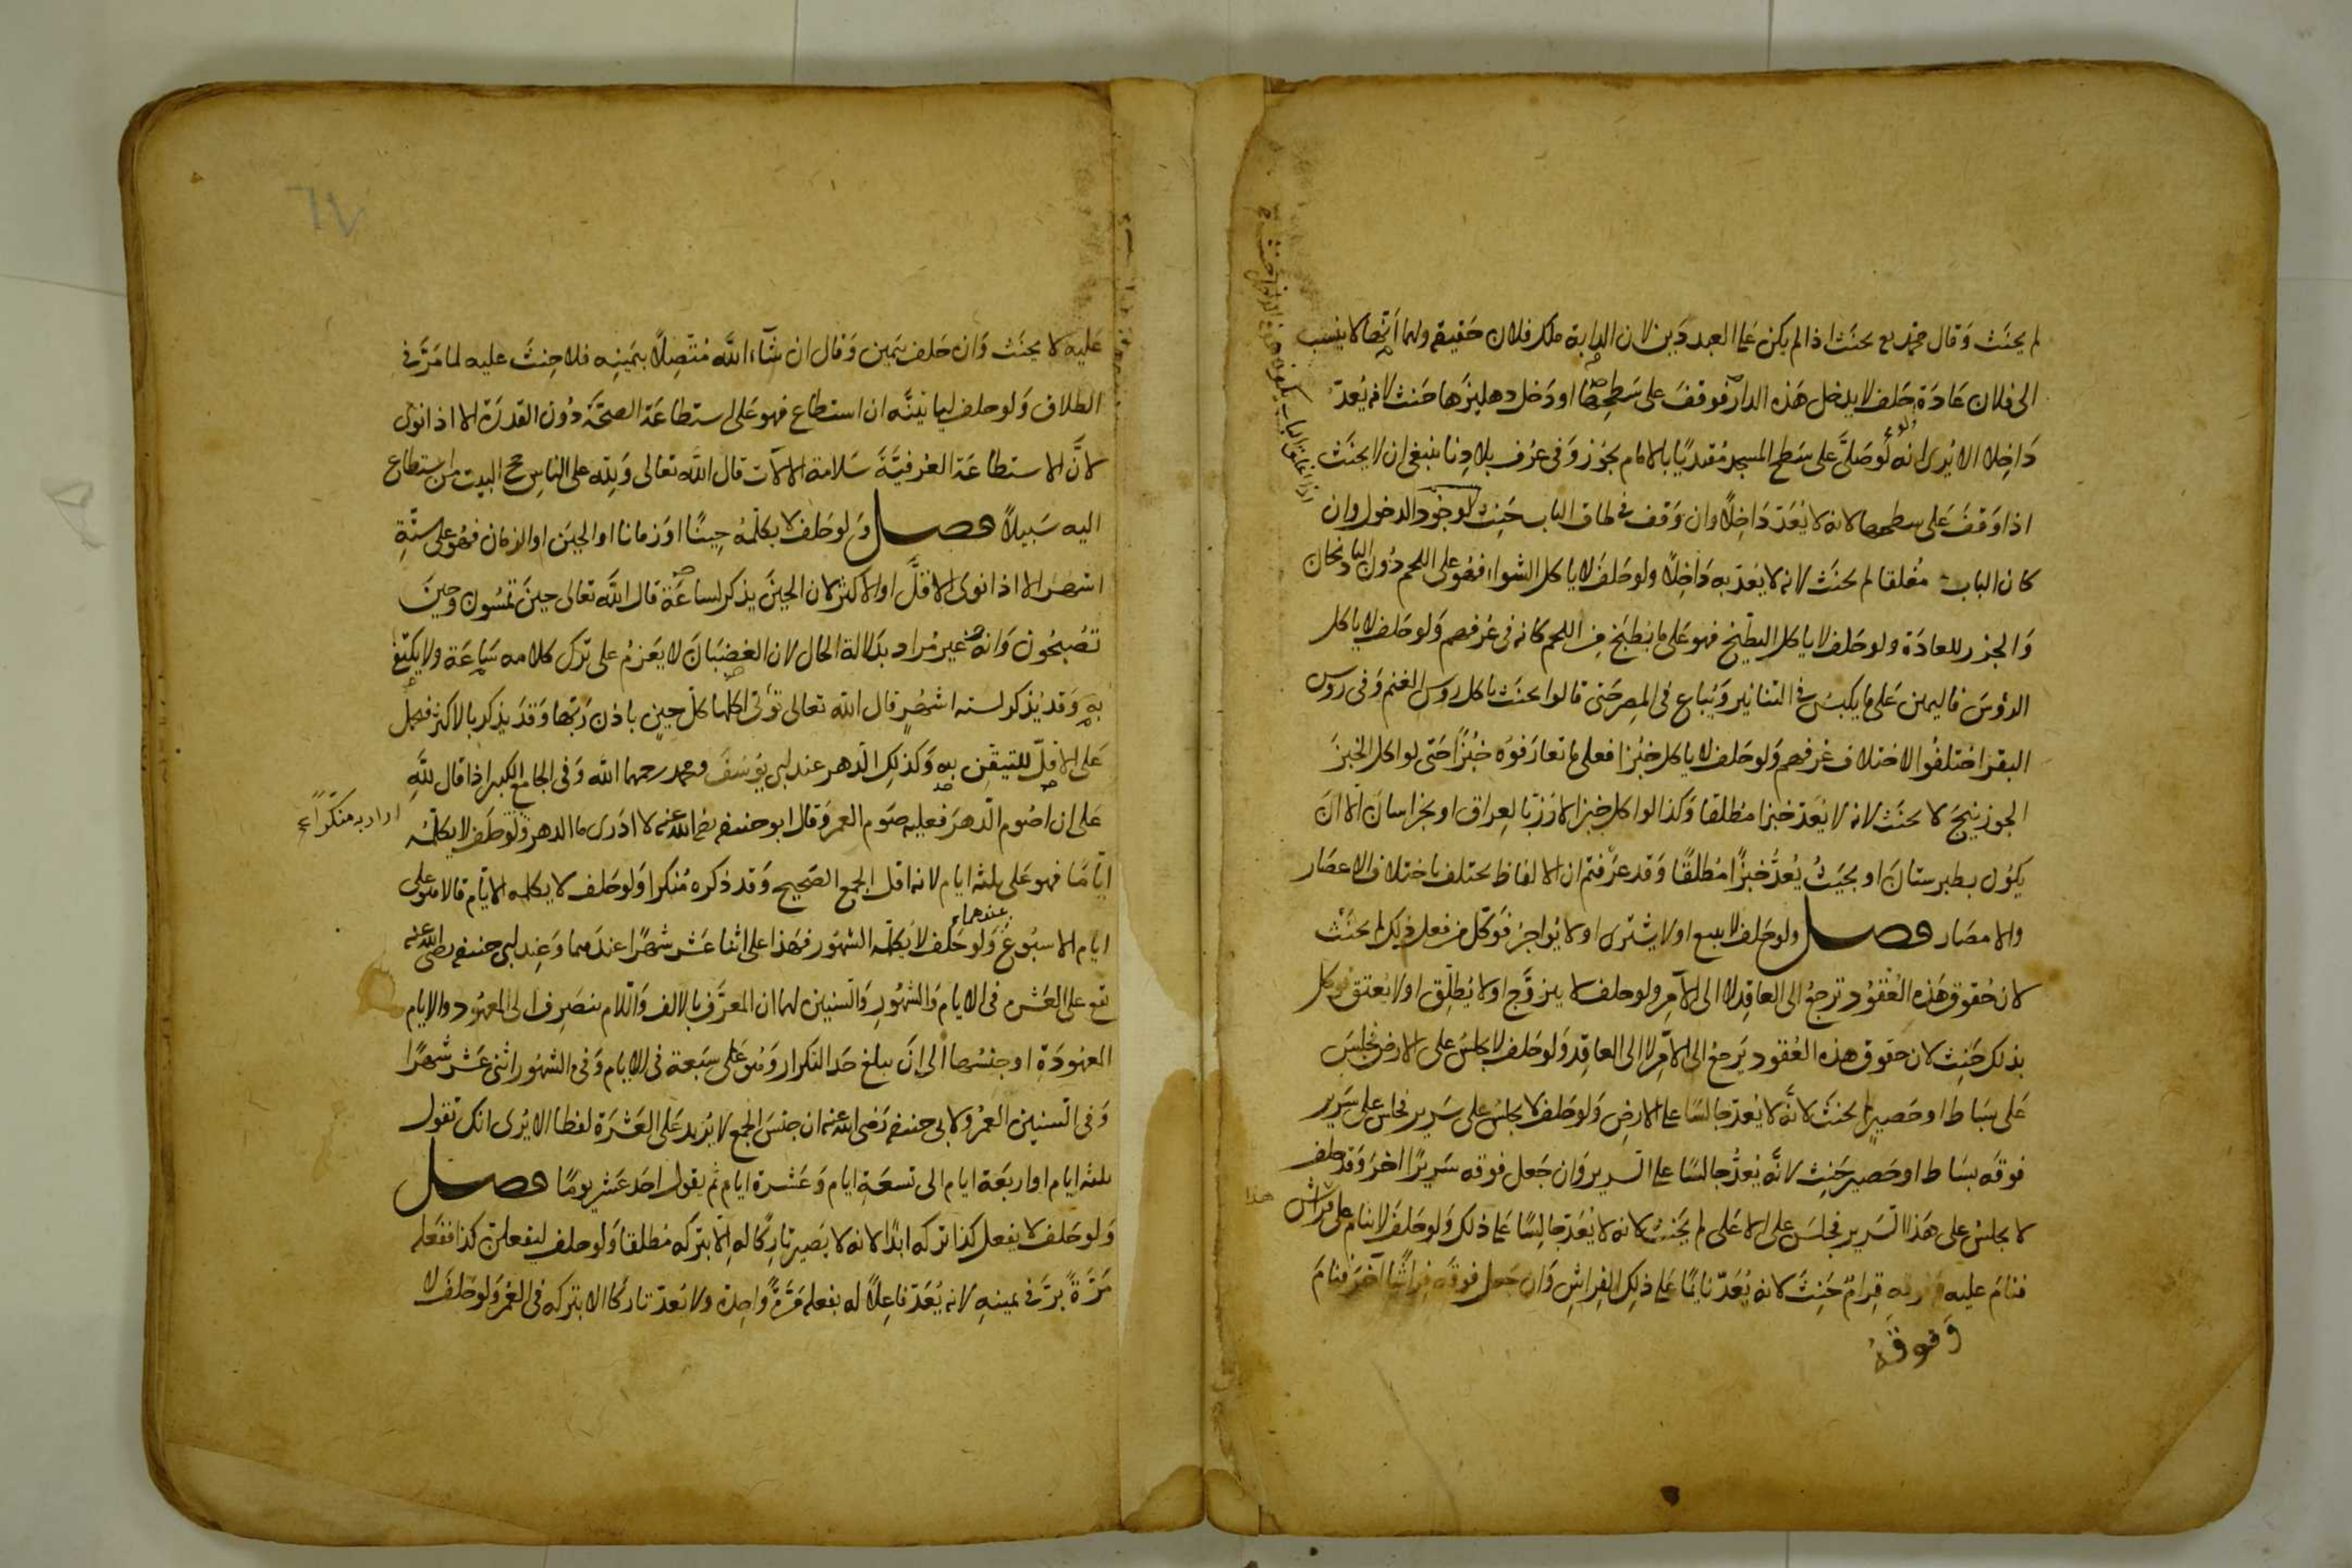 لم يحنث وقال محمد رح يحنث اذا لم يكن على العبد دين لان الدابة ملك فلان حقيقة ولهما انها لا ينسب
الى فلان عادة حلف لا يدخل هذه الدار فوقف على سطحها او دخل دهليزها حنث لانه يعد
داخلا الا يرى انه لو صلى على سطح المسجد مقتديا بالامام يجوز وفى عرف بلادنا ينبغى ان لا يحنث
اذا وقف على سطحها لانه لا يعد داخلا وان وقف فى طاق الباب حنث لوجود الدخول وان
كان الباب مغلقا لم يحنث لانه لا يعد به داخلا ولو حلف لا ياكل الشواء فهو على اللحم دون الباذنجان
والجزر للعادة ولو حلف لا ياكل الطبيخ فهو على ما يطبخ من اللحم كانه فى عرفهم ولو حلف لا ياكل
الرؤس فاليمين على ما يكبس فى التنانير ويباع فى المصر حتى قالوا يحنث باكل روس الغنم وفى روس
البقر اختلفوا لاختلاف عرفهم ولو حلف لا ياكل خبزا فعلى ما تعارفوه خبزا حتى لو اكل الخبز
الجوزينج لا يحنث لانه لا يعد خبزا مطلقا وكذا لو اكل خبز الارز بالعراق او بخراسان الا ان
يكون بطبرستان او بحيث يعد خبزا مطلقا وقد عرفتم ان الالفاظ يختلف باختلاف الاعصار
والامصار فصل ولو حلف لا يبيع او لا يشترى او لا يواجر فوكل من فعل ذلك لم يحنث
لان حقوق هذه العقود ترجع الى العاقد لا الى الآمر ولو حلف لا يتزوج او لا يطلق او لا يعتق فوكل
بذلك حنث لان حقوق هذه العقود يرجع الى الآمر لا الى العاقد ولو حلف لا يجلس على الارض فجلس
على بساط او حصير لم يحنث لانه لا يعد جالسا على الارض ولو حلف لا يجلس على سرير فجلس على سرير
فوقه بساط او حصير حنث لانه يعد جالسا على السرير وان جعل فوقه سريرا اخر وقد حلف
لا يجلس على هذا السرير فجلس على الاعلى لم يحنث لانه لا يعد جالسا على ذلك ولو حلف لا ينام على فراش هذا
فنام عليه وفوقه قرام حنث لانه يعد نايما على ذلك الفراش وان جعل فوقه فراشا آخر فنام
وفوقه
٦٧
عليه لا يحنث وان حلف بيمين وقال ان شاء الله متصلا بيمينه فلا حنث عليه لما مر فى
الطلاق ولو حلف لياتينه ان استطاع فهو على استطاعة الصحة دون القدرة الا اذا نوى
لان الاستطاعة العرفية سلامة الالات قال الله تعالى ولله على الناس حج البيت من استطاع
اليه سبيلا فصل ولو حلف لا يكلمه حينا او زمانا او الحين او الزمان فهو على ستة
اشهر الا اذا نوى الاقل او الاكثر لان الحين يذكر لساعة قال الله تعالى حين تمسون وحين
تصبحون وانه غير مراد بدلالة الحال لان الغضبان لا يعزم على ترك كلامه ساعة ولا يكتفى
به وقد يذكر لستة اشهر قال الله تعالى تؤتى اكلها كل حين باذن ربها وقد يذكر بالاكثر فحمل
على الاقل للتيقن به وكذلك الدهر عند ابى يوسف ومحمد رحمهما الله وفى الجامع الكبير اذا قال لله
على ان اصوم الدهر فعليه صوم العمر وقال ابو حنيفه رضى الله عنه لا ادرى ما الدهر ولو حلف لا يكلمه
اراد به منكرا
اياما فهو على ثلثه ايام لانه اقل الجمع الصحيح وقد ذكره منكرا ولو حلف لا يكلمه الايام قالا هو على
ايام الاسبوع عندهما ولو حلف لا يكلمه الشهور فهذا على اثنا عشر شهرا عندهما وعند ابى حنيفه رضى الله عنه
يقع على العشر فى الايام والشهور والسنين لهما ان المعرف بالالف واللام ينصرف الى المعهود والايام
المعهودة او جنسها الى ان يبلغ حد التكرار وهو على سبعة فى الايام وفى الشهور اثنى عشر شهرا
وفى السنين العمر ولابى حنيفه رضى الله عنه ان جنس الجمع لا يزيد على العشرة لفظا الا يرى انك تقول
ثلثه ايام او اربعة ايام الى تسعة ايام وعشرة ايام ثم يقول احد عشر يوما فصل
ولو حلف لا يفعل كذا تركه ابدا لانه لا يصير تاركا له الا بتركه مطلقا ولو حلف ليفعلن كذا ففعله
مرة بر فى يمينه لانه يعد فاعلا له بفعله مرة واحدة ولا يعد تاركا الا بتركه فى العمر ولو حلف لا